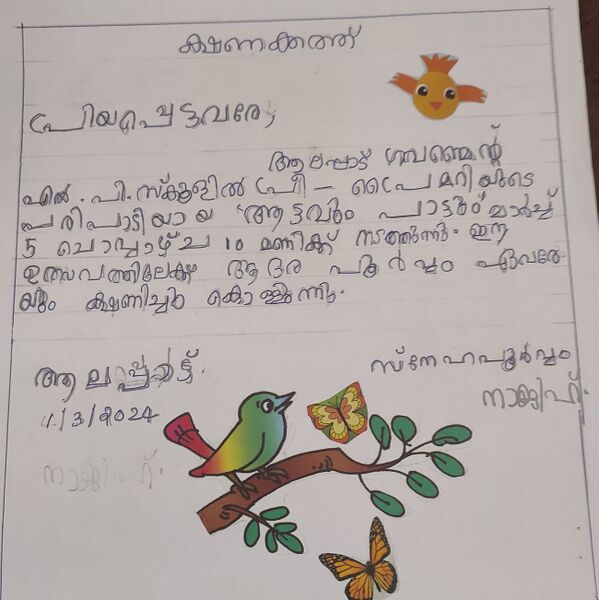 ക്ഷണക്കത്ത്
പ്രിയപ്പെട്ടവരേ,
ആലപ്പാട് ഗവണ്മെന്റ്
എൽ.പി.സ്കൂളിൽ പ്രീ - പ്രൈമറിയുടെ
പരിപാടിയായ 'ആട്ടവും പാട്ടും' മാർച്ച്
5 ചൊവ്വാഴ്ച 10 മണിക്ക് നടത്തുന്നു. ഈ
ഉത്സവത്തിലേക്ക് ആദരപൂർവ്വം ഏവരേ
യും ക്ഷണിച്ചു കൊള്ളുന്നു.
ആലപ്പാട്.
4/3/2024
സ്നേഹപൂർവ്വം
നാജിഹ്.
നാജിഹ്.